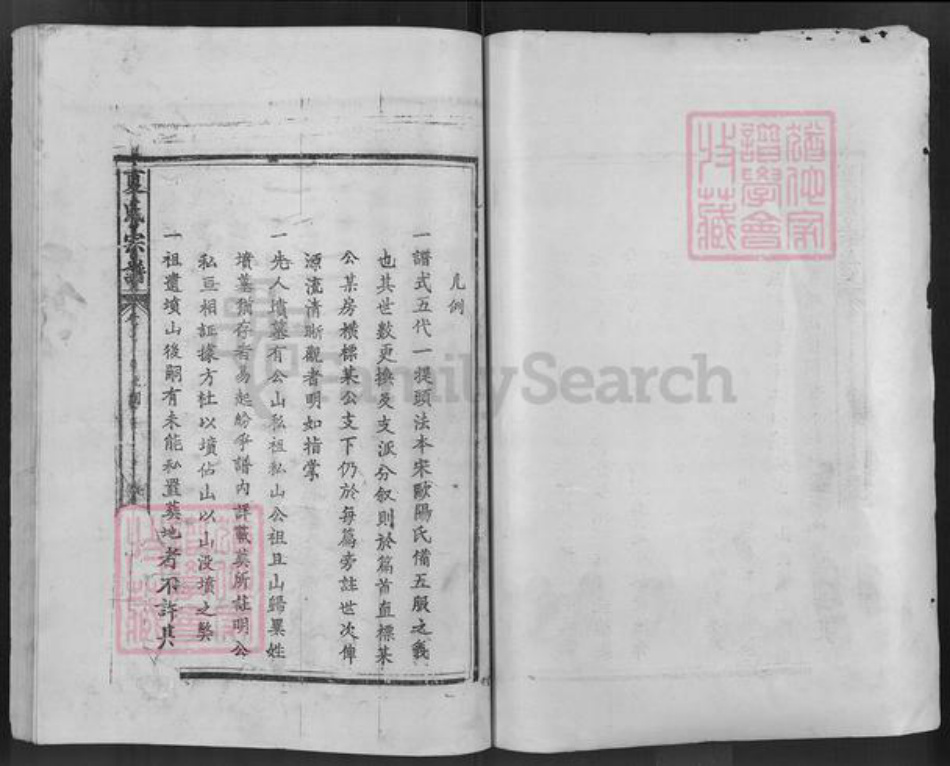 凡例
一譜式五代一提頭法本宋歐陽氏備五服之義
也其世數更換及支派分叙則於篇首直標某
公某房橫標某公支下仍於每篇旁註世次俾
源流清晰觀者明如指掌
一先人墳墓有公山私祖私山公祖且山歸異姓
墳墓猶存者易起紛爭譜內詳載葬所註明公
私互相証據方杜以墳佔山以山没墳之弊
一祖遺墳山後嗣有未能私置葬地者不許其
夏氏宗譜
凡例
譜學會
藏
FamilySearch